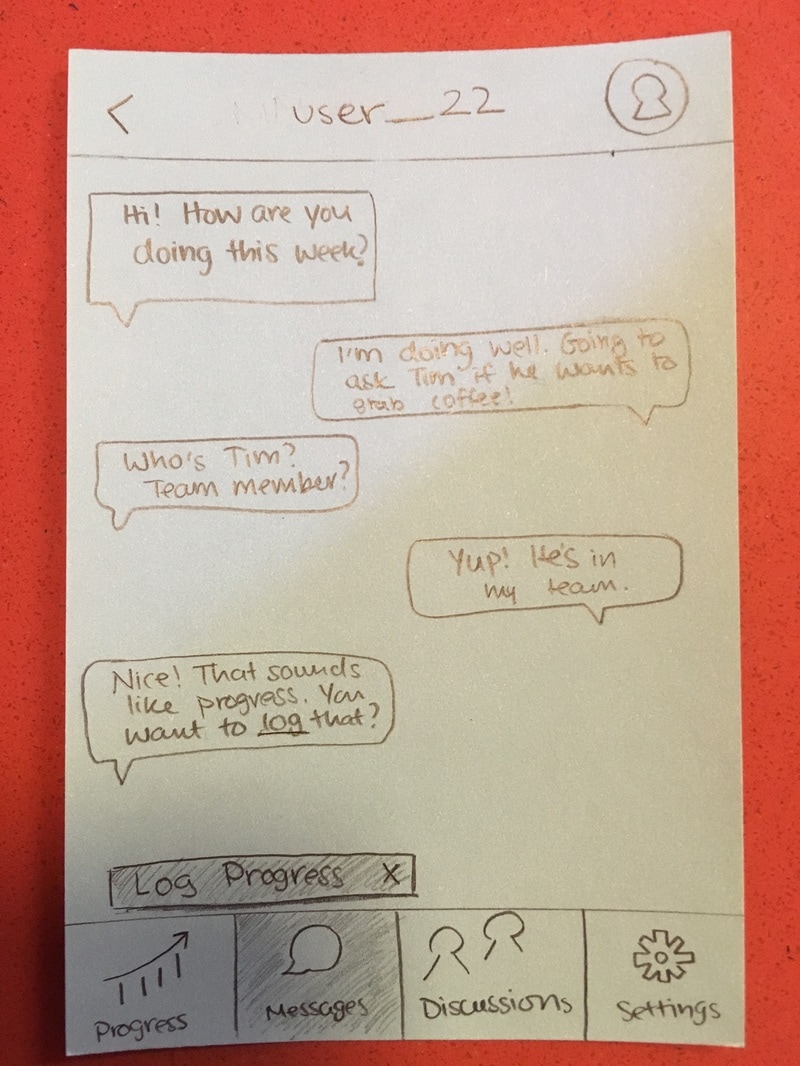 < user_22
Hi! How are you
doing this week?
I'm doing well. Going to
ask Tim if he wants to
grab coffee!
Who's Tim?
Team member?
Yup! He's in
my team.
Nice! That sounds
like progress. You
want to log that?
Log Progress X
Progress
Messages
Discussions
Settings